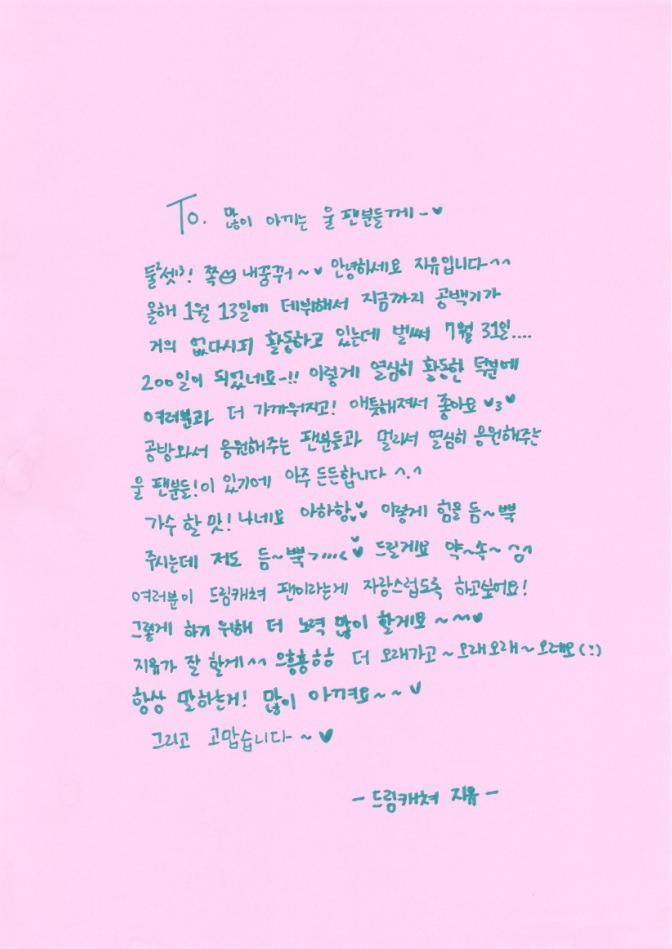 To. 많이 아끼는 울 팬분들께~♥
둘²셋³! 쪽😊 내꿍꿔~♥ 안녕하세요 지유입니다^^
올해 1월 13일에 데뷔해서 지금까지 공백기가
거의 없다시피 활동하고 있는데 벌써 7월 31일....
200일이 되었네요~!! 이렇게 열심히 활동한 덕분에
여러분과 더 가까워지고! 애틋해져서 좋아요 ♥3♥
공방와서 응원해주는 팬분들과 멀리서 열심히 응원해주는
울 팬분들!이 있기에 아주 든든합니다 ^.^
가수 할 맛! 나네요 아하항♥♥ 이렇게 힘을 듬~뿍
주시는데 저도 듬~뿍>...<♥ 드릴게요 약~속~ ^^
여러분이 드림캐쳐 팬이라는게 자랑스럽도록 하고싶어요!
그렇게 하기 위해 더 노력 많이 할게요~^^♥
지유가 잘 할게^^ 으흥흥ㅎㅎ 더 오래가고~오래오래~오래요(:)
항상 말하는거! 많이 아껴요~~♥
그리고 고맙습니다~♥
- 드림캐쳐 지유 -